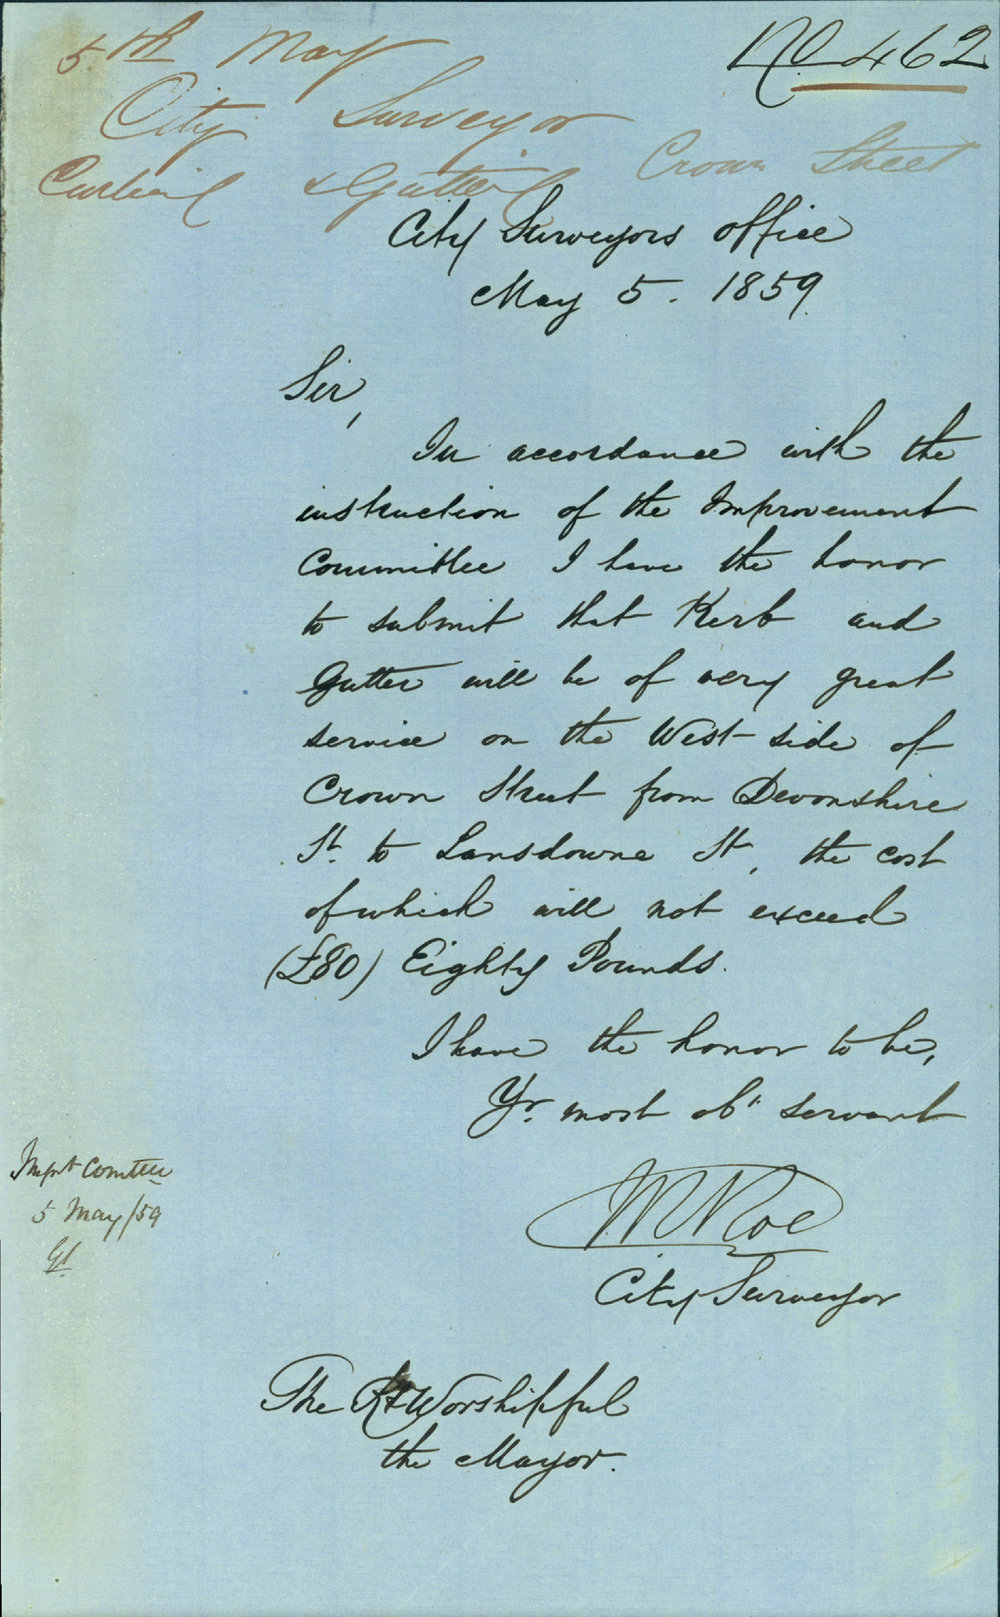 No 462
5th May
City Surveyor
Curbing & Guttering Crown Street
City Surveyors office
May 5. 1859
Sir,
In accordance with the
instruction of the Improvement
Committee I have the honor
to submit that Kerb and
Gutter will be of very great
service on the West side of
Crown Street from Devonshire
St. to Lansdowne St, the cost
of which will not exceed
(£80) Eighty Pounds.
I have the honor to be,
Yr. most obt servant
W Roe
City Surveyor
Impt Comttee
5 May/59
The Rt Worshipful
the Mayor.